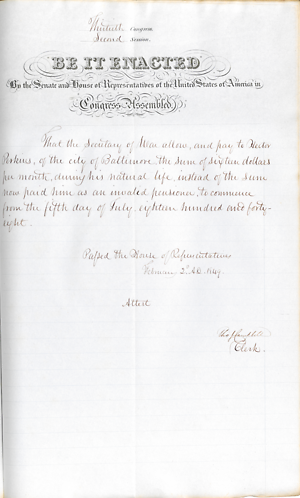 Thirtieth Congress
Second Session
BE IT ENACTED
By the Senate and House of Representatives of the United States of America in
Congress Assembled
That the Secretary of War allow, and pay to Hector
Perkins, of the city of Baltimore the sum of sixteen dollars
per month, during his natural life, instead of the sum
now paid him as an invalid pensioner, to commence
from the fifth day of July, eighteen hundred and forty-
eight.
Passed the House of Representatives
February 2d A.D. 1849.
Attest
Clerk.